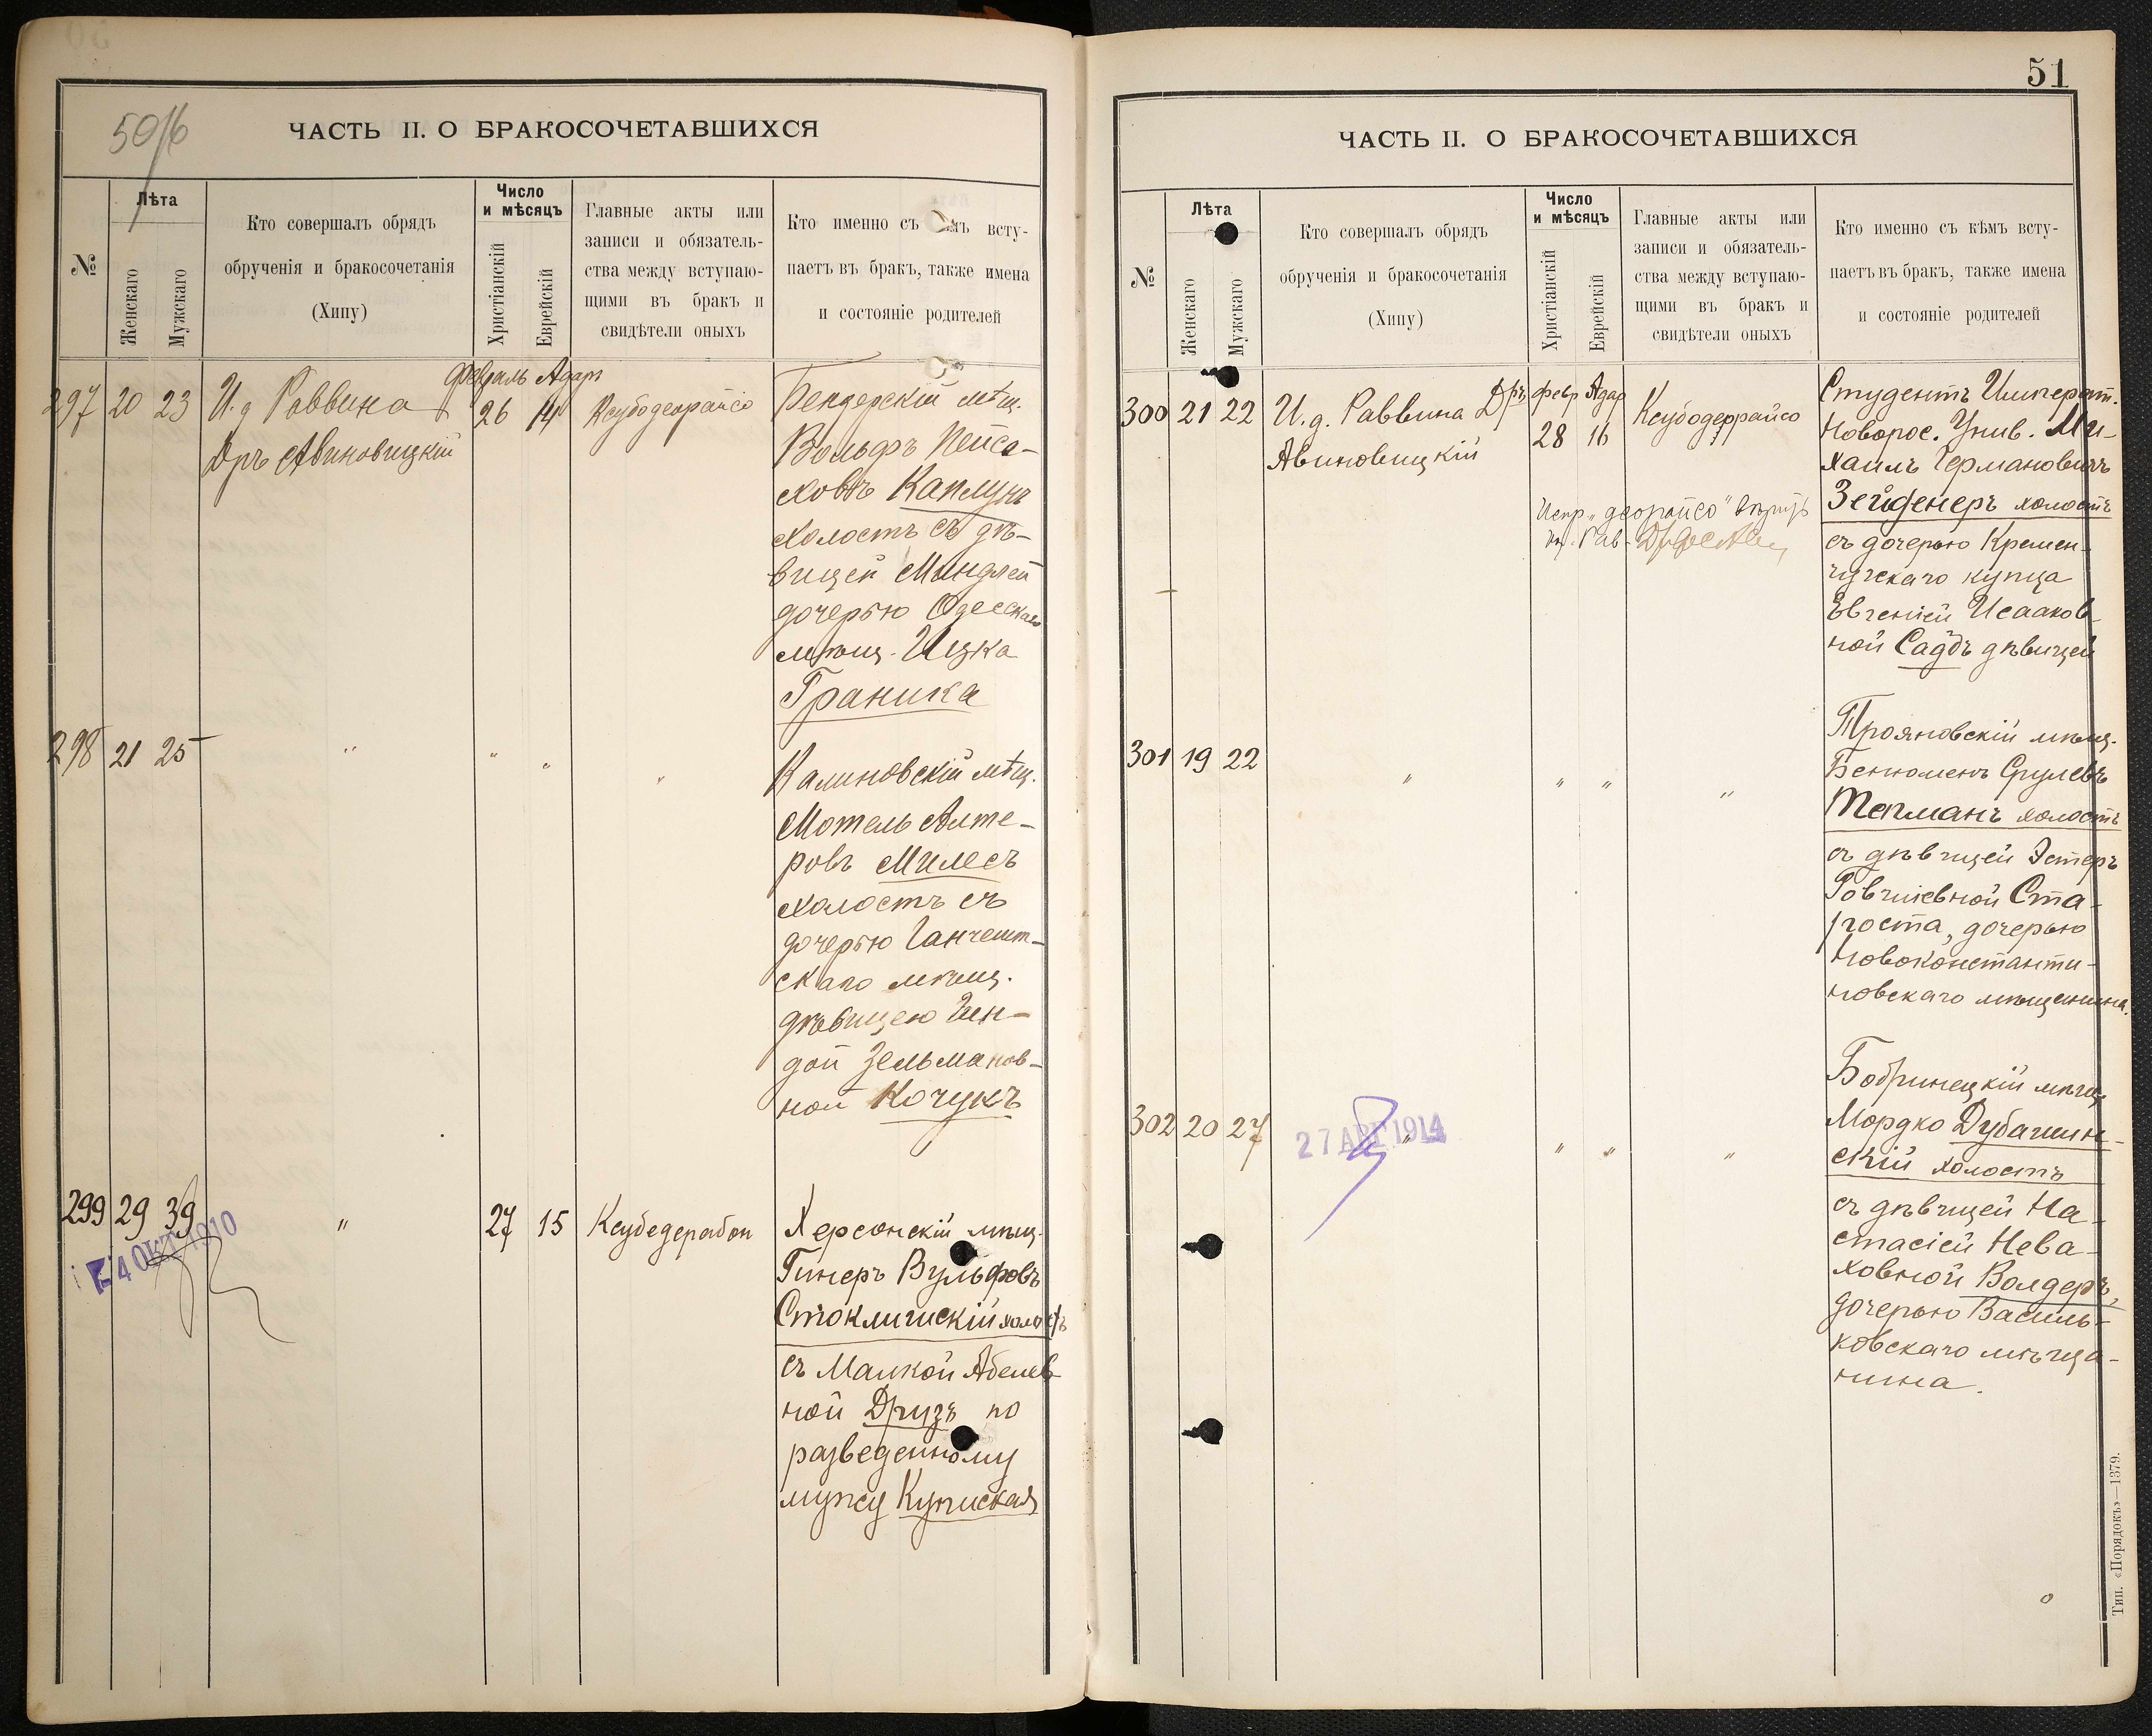 50/б
ЧАСТЬ II. О БРАКОСОЧЕТАВШИХСЯ
№
Лѣта
Женскаго
Мужскаго
Кто совершалъ обрядъ
обрученія и бракосочетанія
(Хипу)
Число
и мѣсяцъ
Христіанскій
Еврейскій
Главные акты или
записи и обязатель-
ства между вступаю-
щими въ бракъ и
свидѣтели оныхъ
Кто именно съ вету-
паетъ въ бракъ, также имена
и состояніе родителей
297 20 23 И. д Раввина
Дръ Авиновицкій
Февраль Адаръ
26 14 Ксубодеорайсо
Бендерскій мѣщ.
Вольфъ Пейса-
ховъ Каплунъ
холостъ съ дѣ-
вицей Миндлей
дочерью Одесскаго
мѣщ. Ицка
Граника
298 21 25 " " " "
Калиновскій мѣщ.
Мотель Алте-
ровъ Милесъ
холостъ съ
дочерью Ганчешт-
скаго мѣщ.
дѣвицею Гин-
дой Зельманов-
ной Кочукъ
299 29 39 " 27 15 Ксубедерабон
4 ОКТ 1910
Херсонскій мѣщ.
Гинеръ Вульфовъ
Стоклишскій холостъ
съ Малкой Абелев-
ной Друзъ по
разведенному
мужу Купиская
51
ЧАСТЬ II. О БРАКОСОЧЕТАВШИХСЯ
№
Лѣта
Женскаго
Мужскаго
Кто совершалъ обрядъ
обрученія и бракосочетанія
(Хипу)
Число
и мѣсяцъ
Христіанскій
Еврейскій
Главные акты или
записи и обязатель-
ства между вступаю-
щими въ бракъ и
свидѣтели оныхъ
Кто именно съ кѣмъ всту-
паетъ въ бракъ, также имена
и состояніе родителей
300 21 22 И. д. Раввина Дръ
Авиновицкій
Февр Адар
28 16 Ксубодеррайсо
Испр. "деорайсо" вѣрить
Студентъ Император.
Новорос. Унив. Ми-
хаилъ Германовичъ
Зейденеръ холостъ
съ дочерью Кремен-
чугскаго купца
Евгеніей Исааков-
ной Садъ дѣвицей
301 19 22 " " " "
Трояновскій мѣщ.
Бенюменъ Срулевъ
Тепманъ холостъ
съ дѣвицей Эстеръ
Говшіевной Ста-
роста, дочерью
Новоконстанти-
новскаго мѣщанина.
302 20 27 " " " "
27 АПР 1914
Бобринецкій мѣщ.
Мордко Дубашин-
скій холостъ
съ дѣвицей На-
стасіей Нева-
ховной Волдеръ,
дочерью Василь-
ковскаго мѣща-
нина.
Тип. «Порядокъ»—1379.